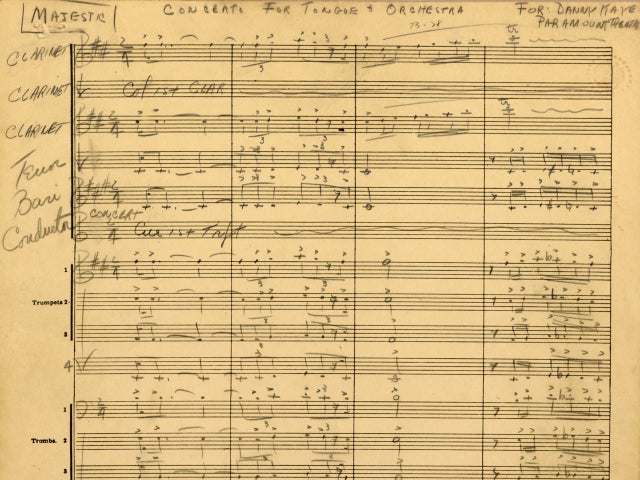 MAJESTIC
CONCERTO FOR TONGUE & ORCHESTRA
FOR: DANNY KAYE
PARAMOUNT THEATRE
CLARINET
CLARINET
Col 1st CLAR
CLARINET
Tenor
Bari
CONCERT
Conductor
Cue 1st Trpt
1
Trumpets 2
3
4
1
Trombs. 2
3